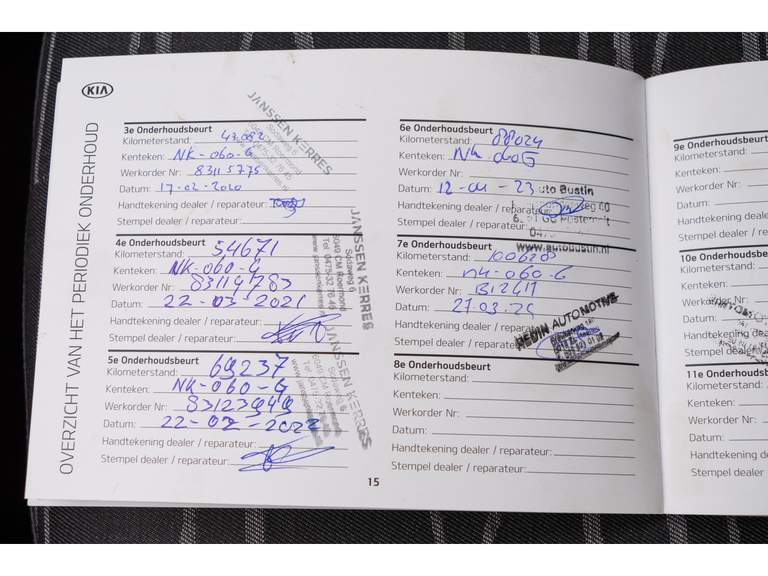 KIA
OVERZICHT VAN HET PERIODIEK ONDERHOUD
3e Onderhoudsbeurt
Kilometerstand: 43.082
Kenteken: NK-060-G
Werkorder Nr: 83115775
Datum: 17-02-2020
Handtekening dealer / reparateur:
Stempel dealer / reparateur:
JANSSEN KERRES
4e Onderhoudsbeurt
Kilometerstand: 54671
Kenteken: NK-060-G
Werkorder Nr: 83119783
Datum: 22-03-2021
Handtekening dealer / reparateur:
Stempel dealer / reparateur:
JANSSEN KERRES
Südweg 6
6049 CM Roermond
5e Onderhoudsbeurt
Kilometerstand: 69237
Kenteken: NK-060-G
Werkorder Nr: 83123949
Datum: 22-02-2022
Handtekening dealer / reparateur:
Stempel dealer / reparateur:
JANSSEN KERRES
15
6e Onderhoudsbeurt
Kilometerstand: 88024
Kenteken: NK 060G
Werkorder Nr:
Datum: 12-01-23
Handtekening dealer / reparateur:
Stempel dealer / reparateur:
uto Bustin
www.autobustin.nl
7e Onderhoudsbeurt
Kilometerstand: 100628
Kenteken: nk-060-G
Werkorder Nr: B12611
Datum: 27.03.24
Handtekening dealer / reparateur:
Stempel dealer / reparateur:
HEDIN AUTOMOTIVE
8e Onderhoudsbeurt
Kilometerstand:
Kenteken:
Werkorder Nr:
Datum:
Handtekening dealer / reparateur:
Stempel dealer / reparateur:
9e Onderhoudsb
Kilometerstand:
Kenteken:
Werkorder Nr:
Datum:
Handtekening de
Stempel dealer /
10e Onderhouds
Kilometerstand:
Kenteken:
Werkorder Nr:
Datum:
Handtekening dea
Stempel dealer
11e Onderhouds
Kilometerstand:
Kenteken:
Werkorder Nr:
Datum:
Handtekening de
Stempel dealer